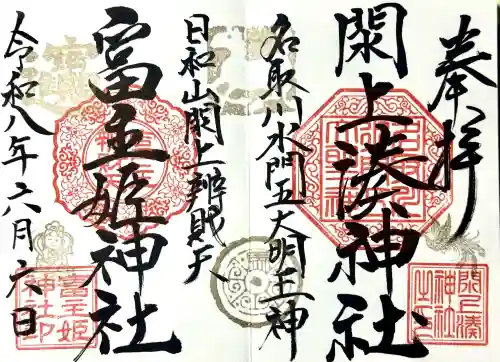 奉拝
閖上湊神社
名取川水門五大明王神
日和山閖上辨財天
富主姫神社
令和八年六月六日
閖上湊
神社
之印
富主姫
神社印